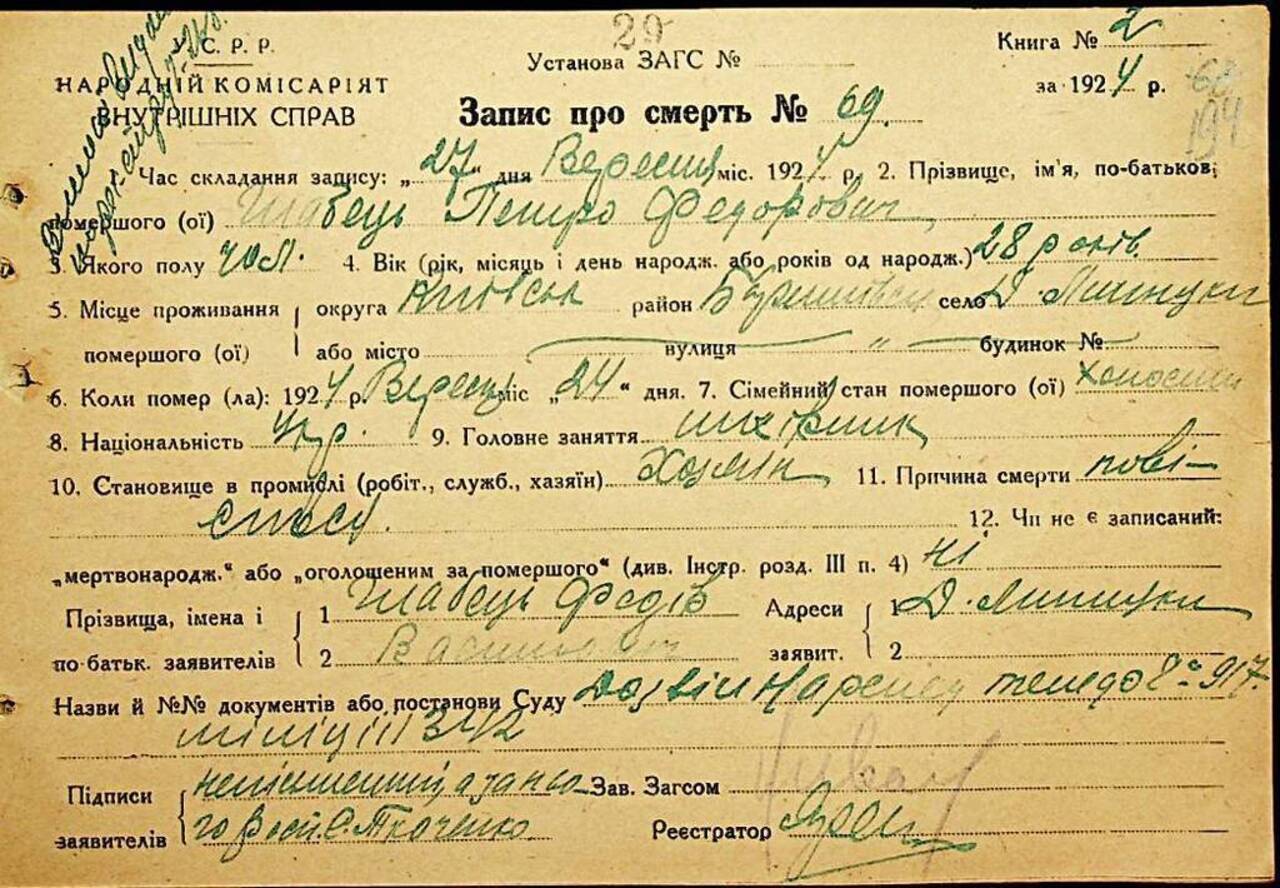 У. С. Р. Р.
НАРОДНІЙ КОМІСАРІЯТ
ВНУТРІШНІХ СПРАВ
29
Установа ЗАГС №
Запис про смерть № 69.
Книга № 2
за 1924 р.
68
194
Час складання запису: „27" дня Вересня міс. 1924 р. 2. Прізвище, ім'я, по-батькові
помершого (ої) Шабець Петро Федорович
3. Якого полу чол. 4. Вік (рік, місяць і день народж. або років од народж.) 28 років.
5. Місце проживання помершого (ої) округа Київськ район село Д.
або місто вулиця „ будинок №
6. Коли помер (ла): 1924 р. Вересня міс „24" дня. 7. Сімейний стан помершого (ої) Холостий
8. Національність Укр. 9. Головне заняття
10. Становище в промислі (робіт., служб., хазяїн) Хозяїн 11. Причина смерти пові-
сився. 12. Чи не є записаний:
„мертвонародж." або „оголошеним за помершого" (див. Інстр. розд. III п. 4) ні
Прізвища, імена і по-батьк. заявителів 1 Шабець Федір Адреси заявит. 1 Д.
2 Васильович 2
Назви й №№ документів або постанови Суду Дозвіл
міліції 3412
Підписи заявителів неписьменний, а за нього Зав. Загсом
Ткаченко Реєстратор